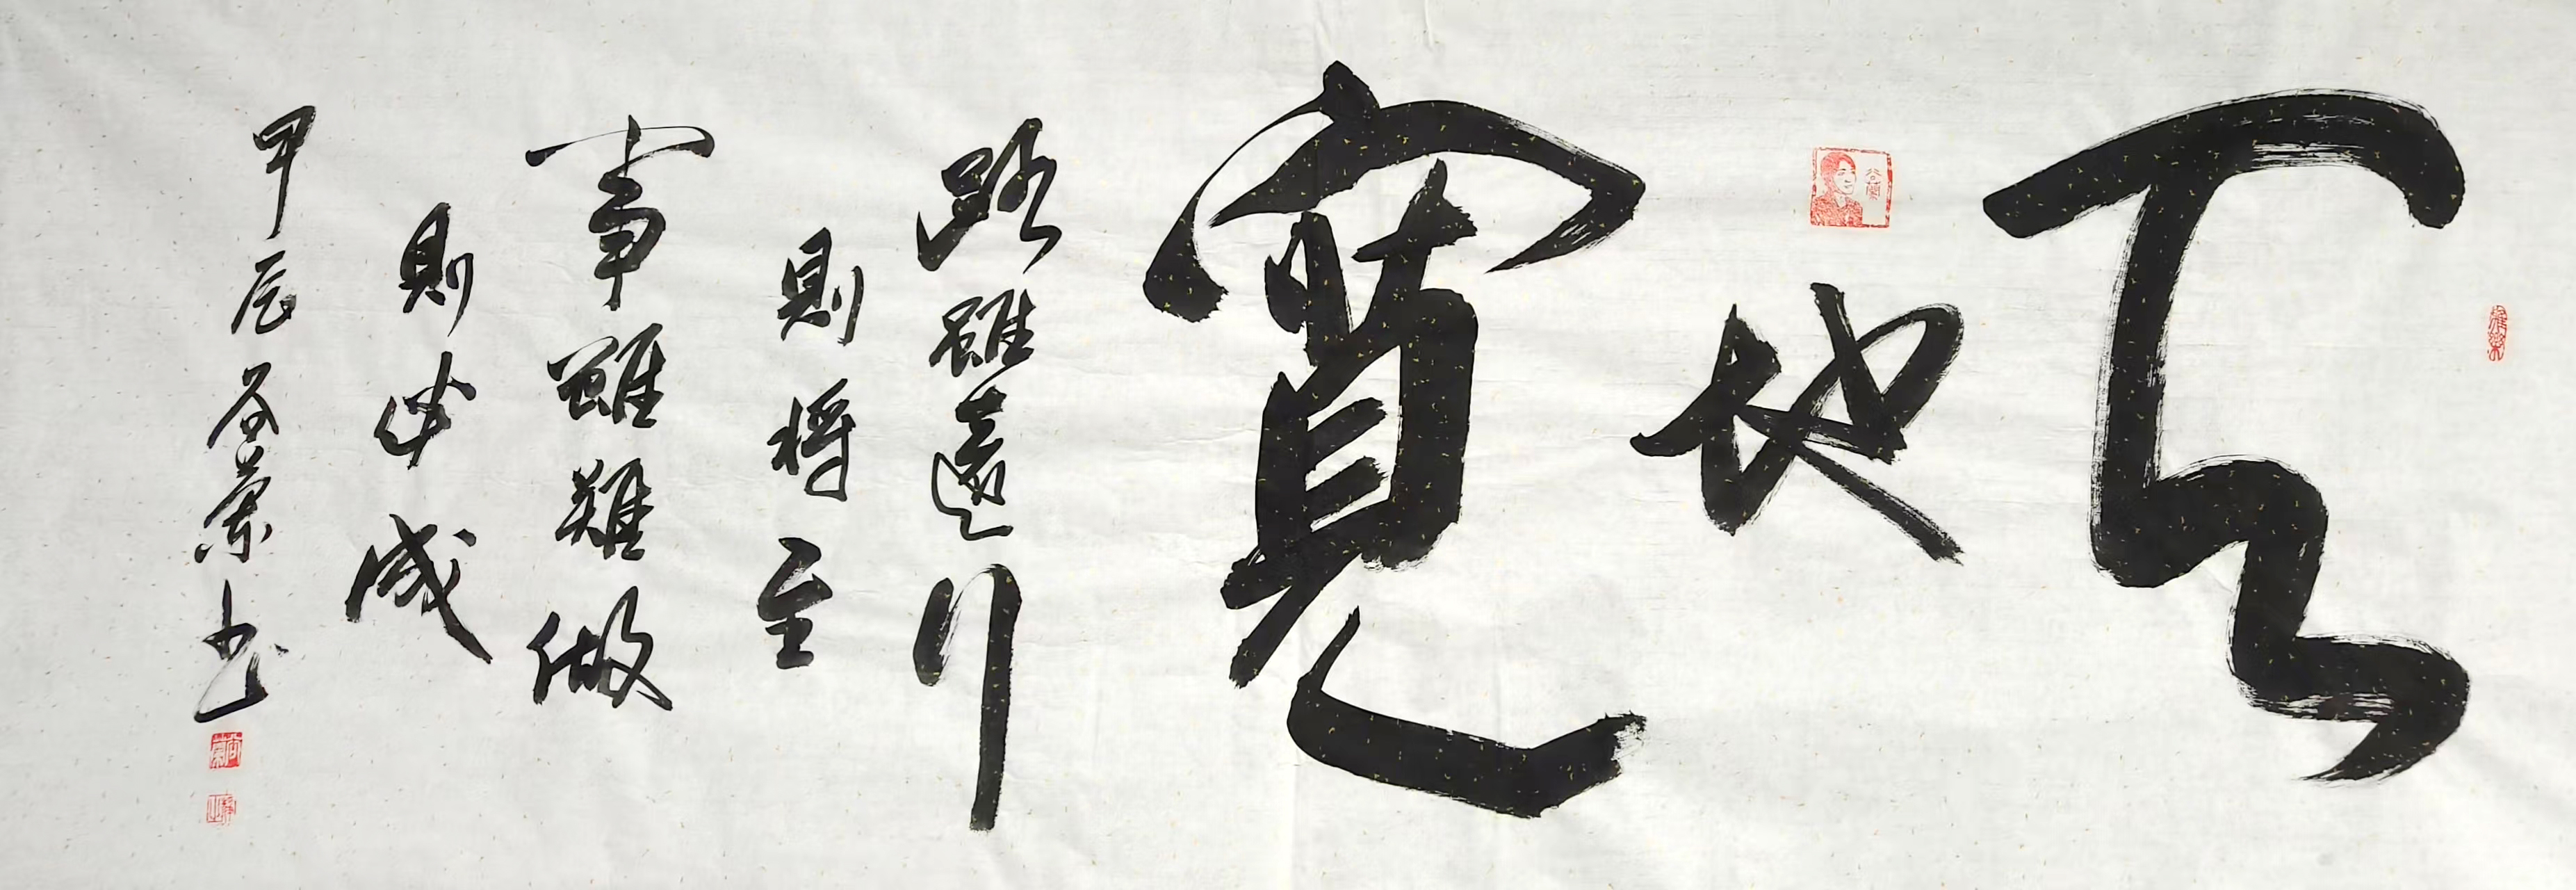 天地寬
路雖遠行
則將至
事雖難做
則必成
甲辰谷蘭书
谷蘭